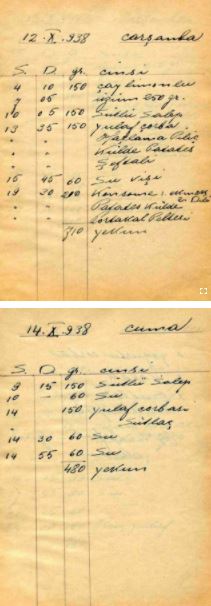 12.X.938 çarşanba
S. D. gr. cinsi
4 10 150 çay limonlu
7 05 üzüm 250 gr.
10 05 150 Sütlü Salep
13 35 150 yulaf çorba
" " Haşlama Piliç
" " Külde Patates
" " Şeftali
15 45 60 Su Vişi
19 30 200 Konsome :
" " Patates Külde
" " Portakal Peltesi
710 yekun
14.X.938 cuma
S. D. gr. cinsi
9 15 150 Sütlü Salep
10 - 60 Su
14 150 yulaf çorbası
Sütlaç
14 30 60 Su
14 55 60 Su
480 yekun